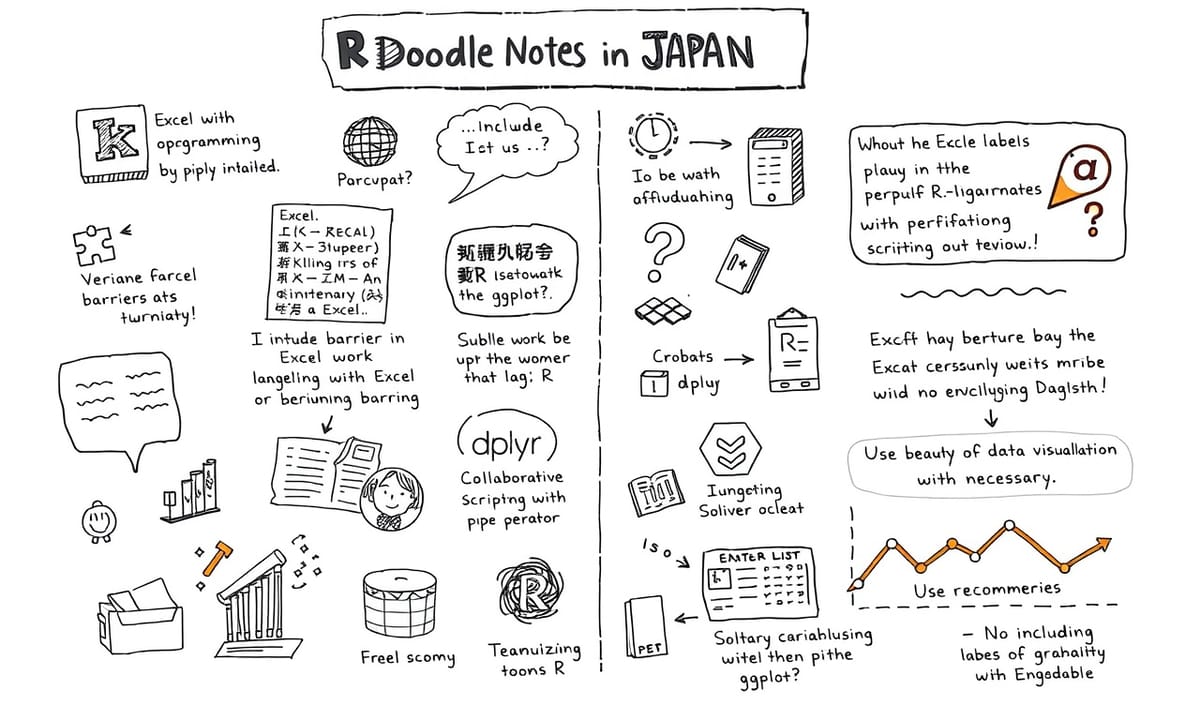 R Doodle Notes in JAPAN
k
Excel with
oprgramming
by piply intailed.
Parcupat?
...Include
Ict us ..?
Veriane farcel
barriers ats
turniaty!
Excel.
RECAL)
X-3tupeer)
Klling irs of
X-IM-An
a Excel..
R Isetowatk
the ggplot?.
I intude barrier in
Excel work
langeling with Excel
or beriuning barring
Sublle work be
upt the womer
that lag: R
dplyr
Collaborative
Scripting with
pipe perator
Freel scomy
R
Teanuizing
toons R
Io be wath
affluduahing
Crobats
dpluy
R=
Iungeting
Soliver ocleat
Iso
EAITER LIST
PET
Soltary cariahlusing
witel then pithe
ggplot?
Whout he Eccle labels
plauy in tthe
perpulf R.-ligairnates
with perfifationg
scriiting out teviow.!
a
?
Excft hay berture bay the
Excat cerssunly weits mribe
wiid no envcllyging Daglsth!
Use beauty of data visuallation
with necessary.
Use recommeries
– No including
labes of grahality
with Engsdable